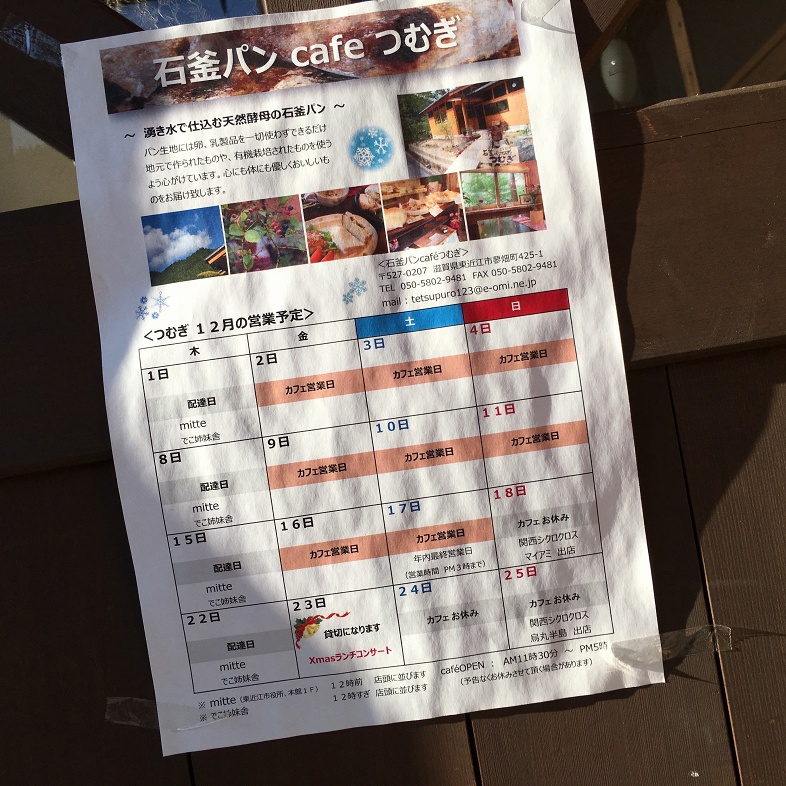 石釜パン cafe つむぎ
～ 湧き水で仕込む天然酵母の石釜パン ～
パン生地には卵、乳製品を一切使わずできるだけ
地元で作られたものや、有機栽培されたものを使う
よう心がけています。心にも体にも優しくおいしいも
のをお届け致します。
つむぎ
<石釜パンcaféつむぎ>
〒527-0207 滋賀県東近江市夢畑町425-1
TEL 050-5802-9481 FAX 050-5802-9481
mail：tetsupuro123@e-omi.ne.jp
<つむぎ １２月の営業予定>
木 金 土 日
１日 ２日 ３日 ４日
配達日 カフェ営業日 カフェ営業日 カフェ営業日
mitte
でこ姉妹舎
８日 ９日 １０日 １１日
配達日 カフェ営業日 カフェ営業日 カフェ営業日
mitte
でこ姉妹舎
１５日 １６日 １７日 １８日
配達日 カフェ営業日 カフェ営業日 カフェお休み
mitte 年内最終営業日 関西シクロクロス
でこ姉妹舎 (営業時間 PM３時まで) マイアミ 出店
２２日 ２３日 ２４日 ２５日
配達日 貸切になります カフェお休み カフェお休み
mitte Xmasランチコンサート 関西シクロクロス
でこ姉妹舎 烏丸半島 出店
※ mitte（東近江市役所、本館１Ｆ） １２時前 店頭に並びます
※ でこ姉妹舎 １２時すぎ 店頭に並びます
caféOPEN： AM11時30分 ～ PM5時
（予告なくお休みさせて頂く場合があります）